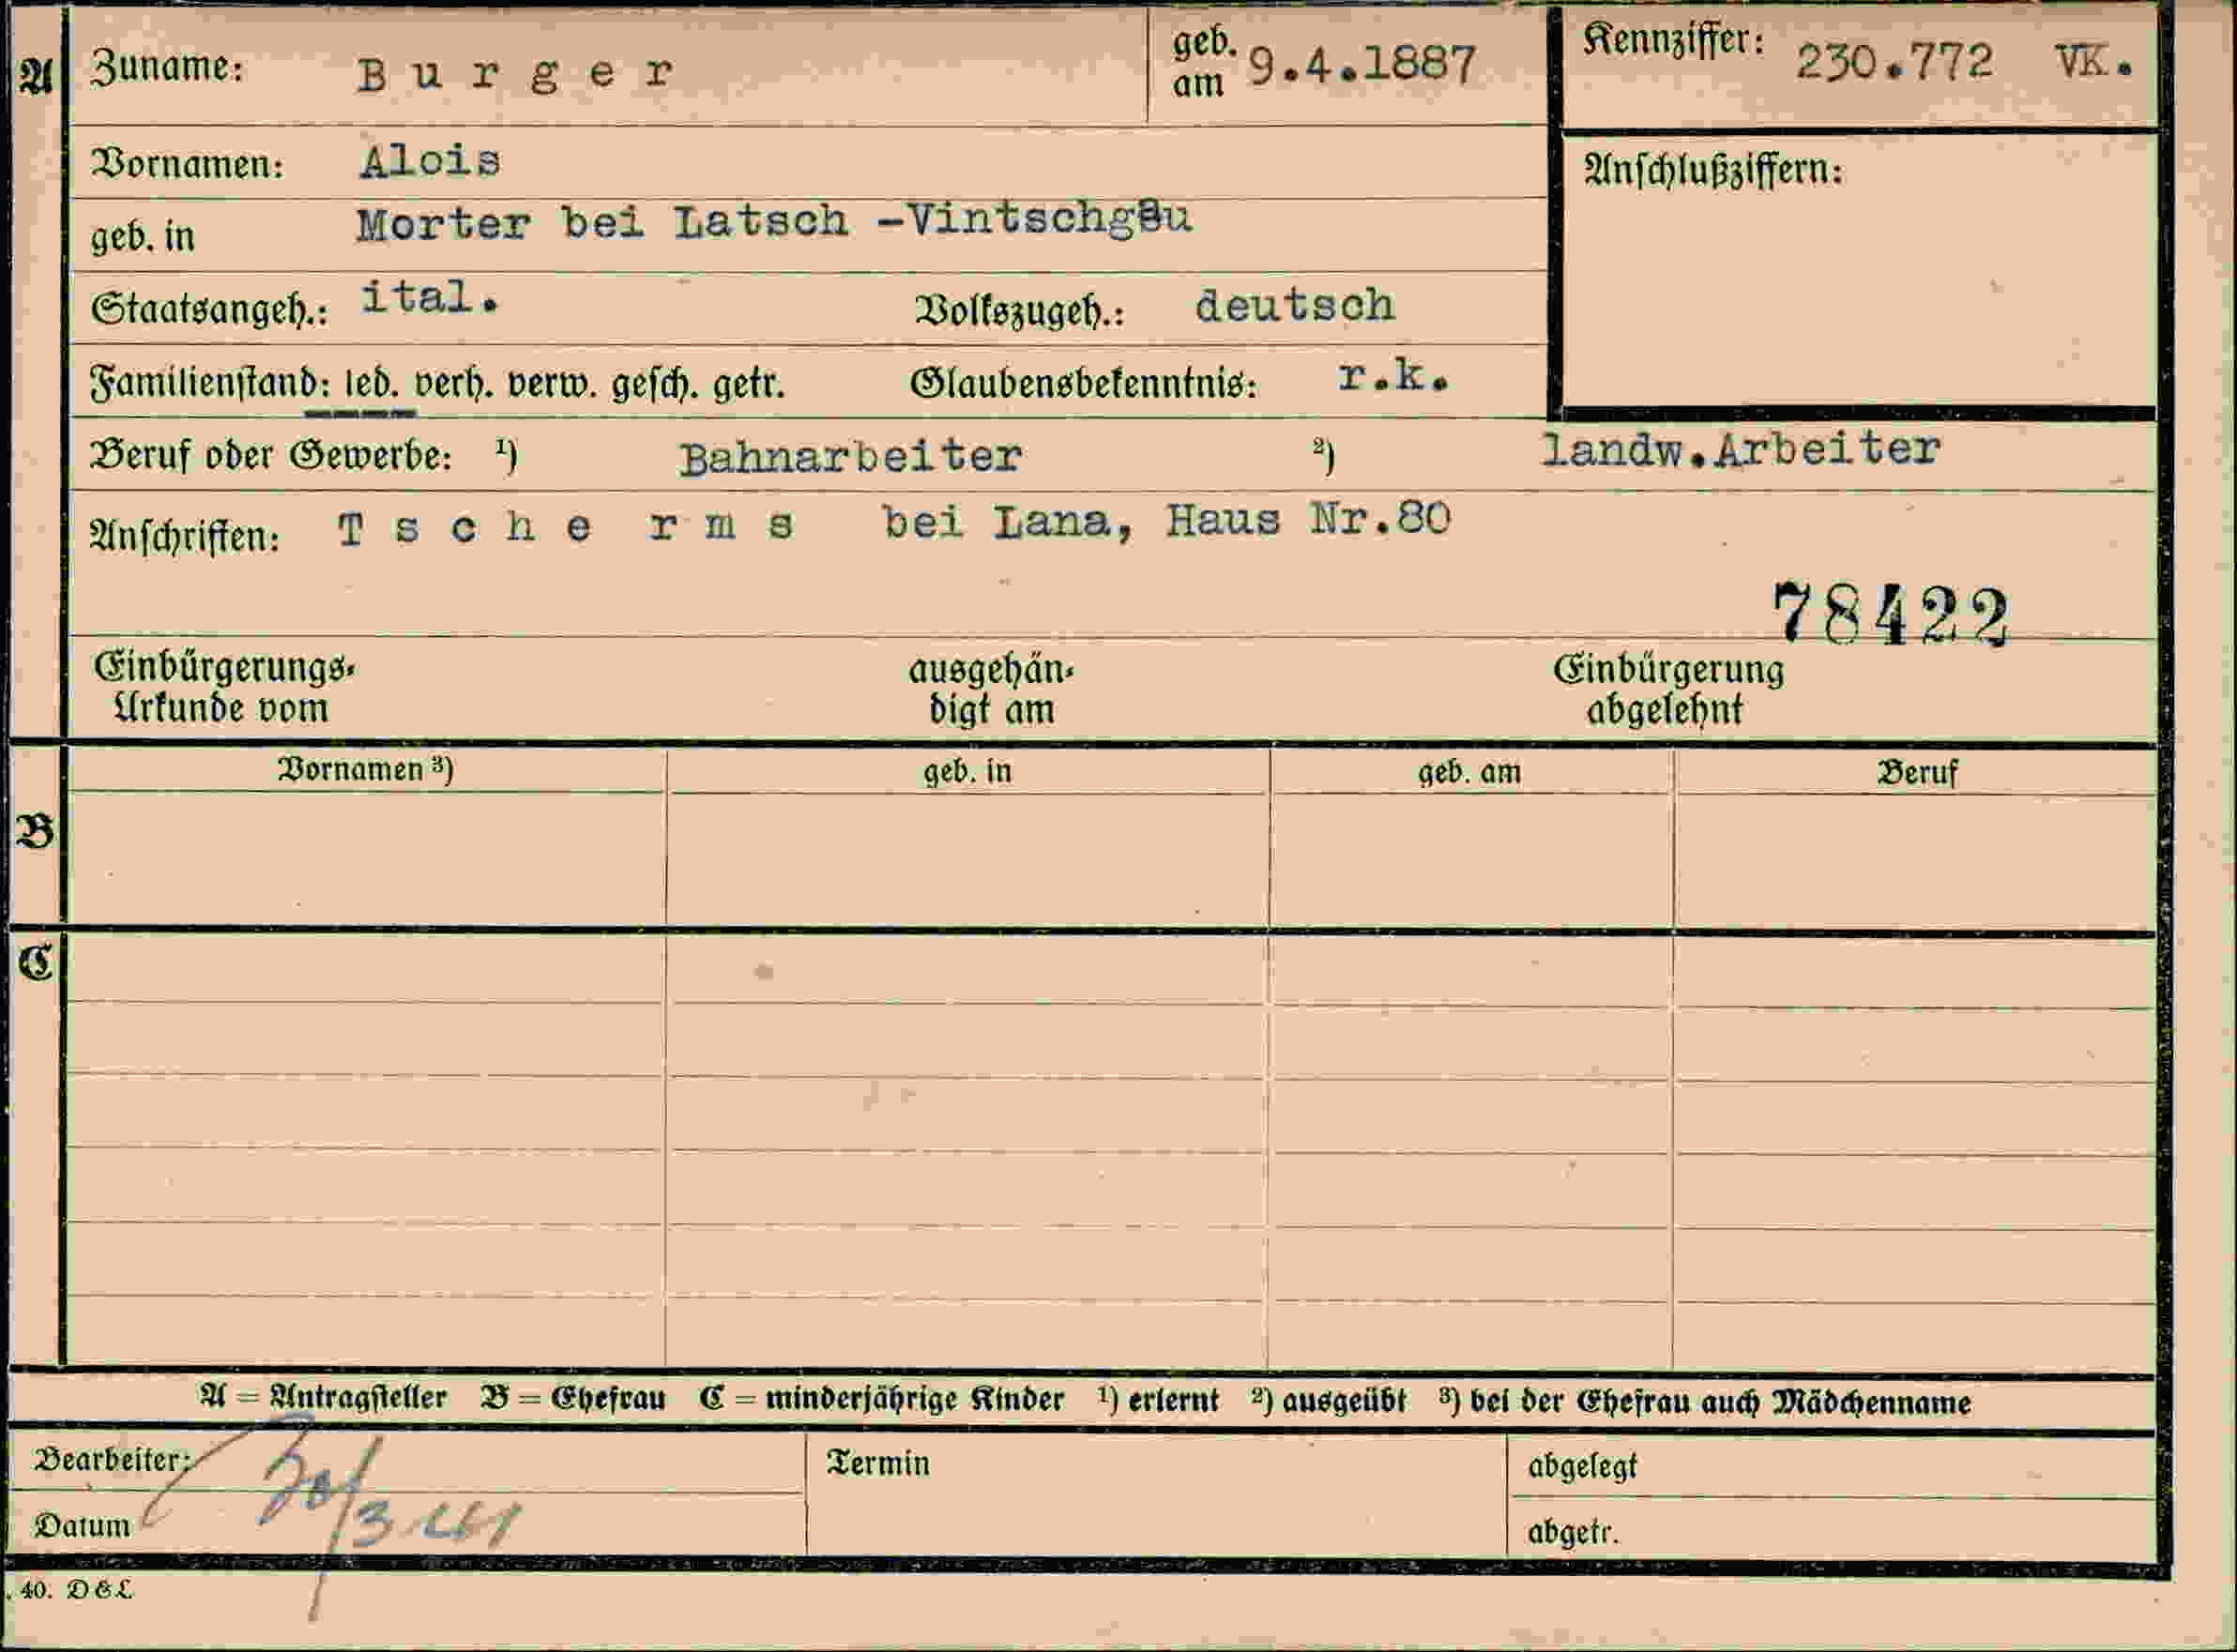 A Zuname: Burger geb. am 9.4.1887 Kennziffer: 230.772 VK.
Vornamen: Alois Anschlußziffern:
geb. in Morter bei Latsch -Vintschgau
Staatsangeh.: ital. Volkszugeh.: deutsch
Familienstand: led. verh. verw. gesch. getr. Glaubensbekenntnis: r.k.
Beruf oder Gewerbe: 1) Bahnarbeiter 2) landw.Arbeiter
Anschriften: Tscherms bei Lana, Haus Nr.80
78422
Einbürgerungs-Urkunde vom ausgehändigt am Einbürgerung abgelehnt
Vornamen 3) geb. in geb. am Beruf
B
C
A = Antragsteller B = Ehefrau C = minderjährige Kinder 1) erlernt 2) ausgeübt 3) bei der Ehefrau auch Mädchenname
Bearbeiter: Termin abgelegt
Datum abgetr.
. 40. D&L